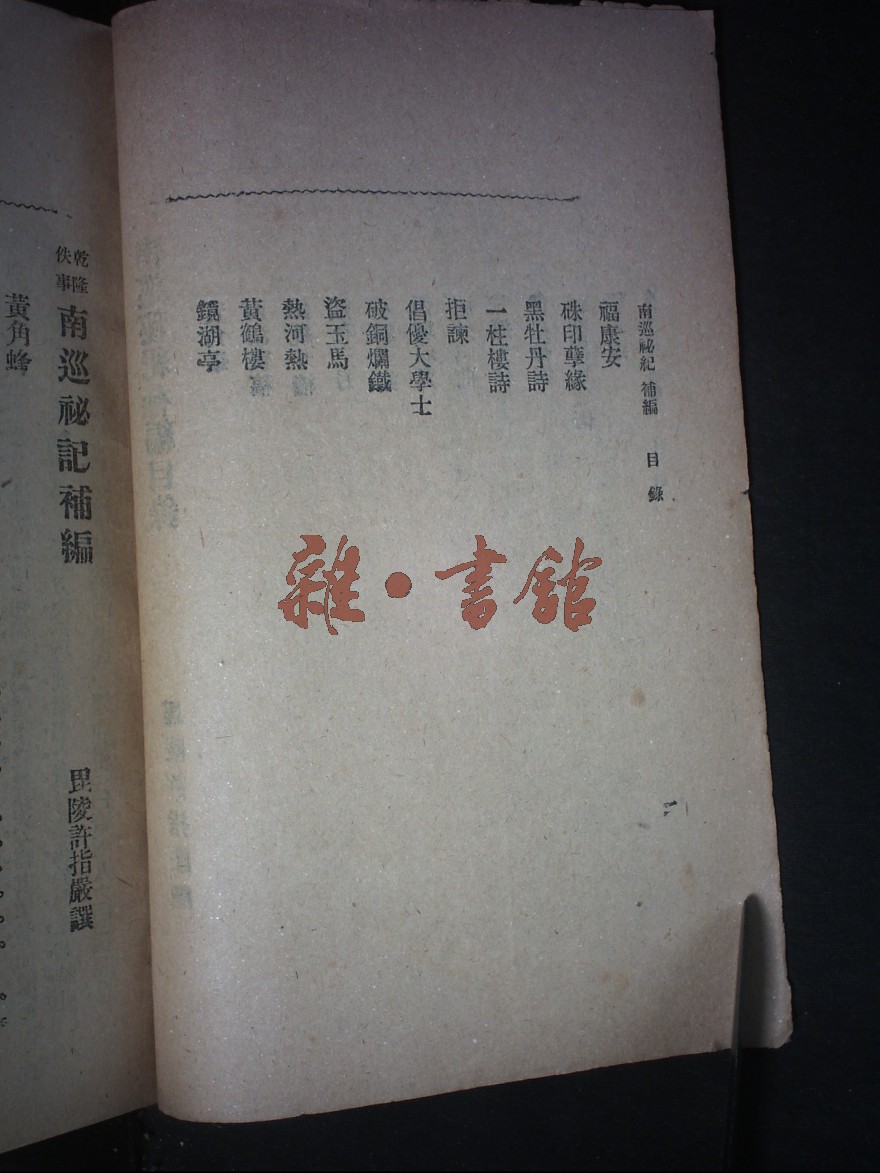 南巡祕紀 補編 目錄
福康安
硃印孽緣
黑牡丹詩
一桂樓詩
拒諫
倡優大學士
破銅爛鐵
盜玉馬
熱河熱
黃鶴樓
鏡湖亭
乾隆佚事 南巡祕記補編
毘陵許指嚴譔
黃角蜂
雜·書館